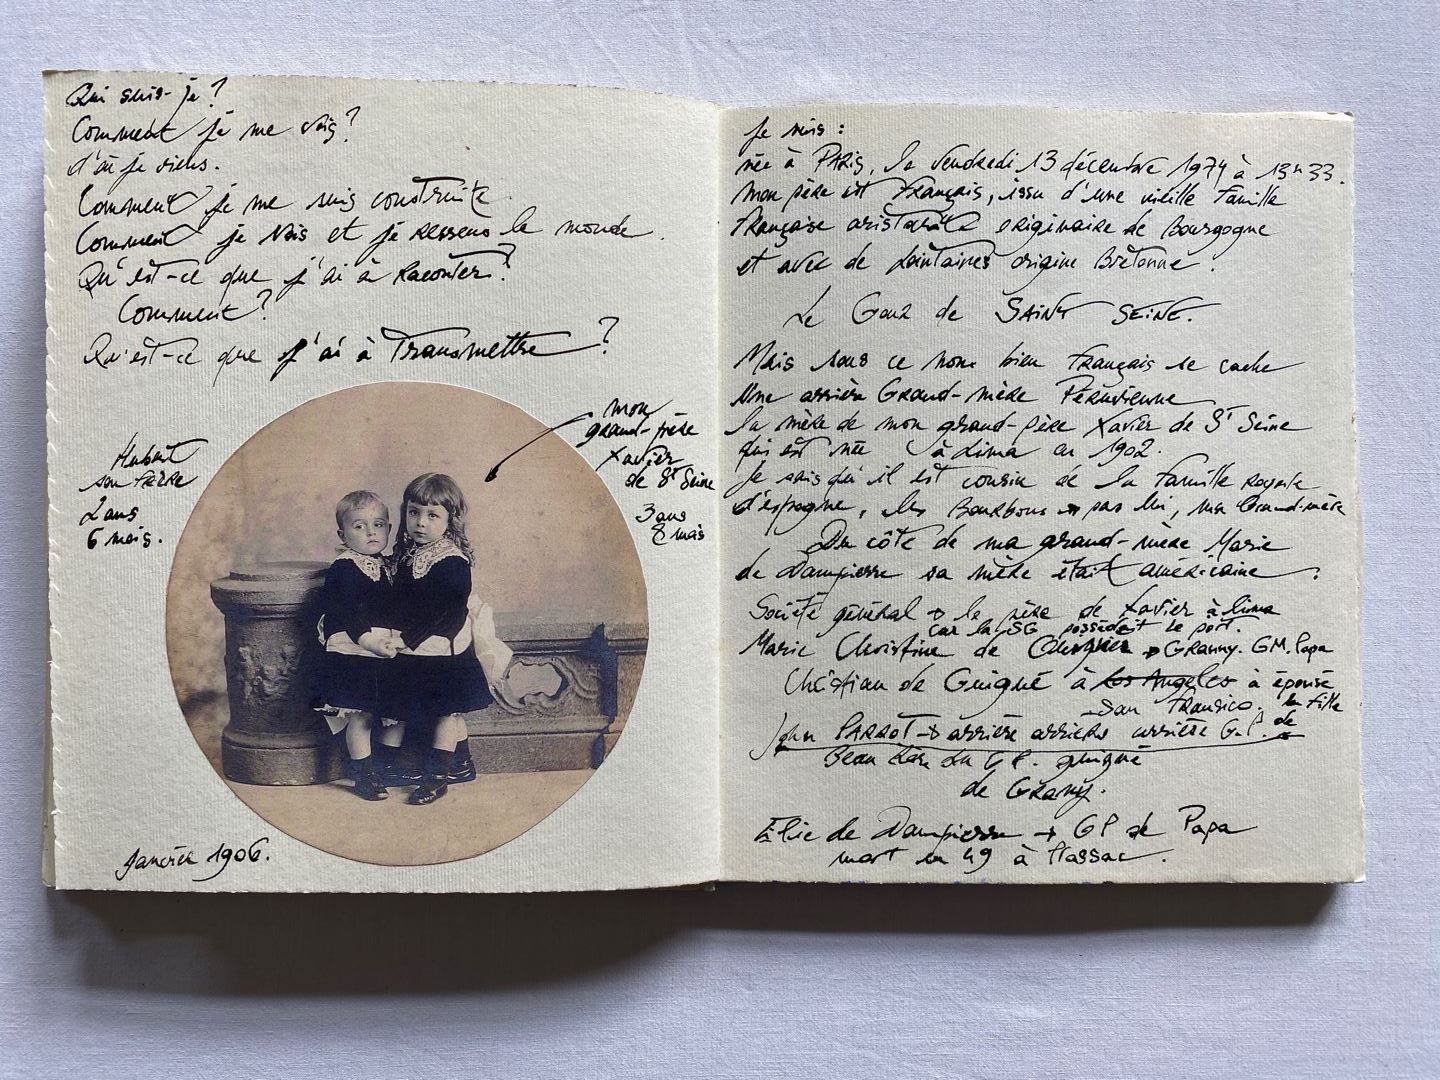 Qui suis-je ?
Comment je me vois ?
d'où je viens.
Comment je me suis construite
Comment je vois et je ressens le monde.
Qu'est-ce que j'ai à raconter ?
Comment ?
Qu'est-ce que j'ai à Transmettre ?
mon
grand-père
Xavier
de St Seine
3 ans
8 mois
Hubert
son frère
2 ans
6 mois.
Janvier 1906.
Je suis :
née à PARis, le Vendredi 13 décembre 1974 à 13h33.
mon père est Français, issu d'une vieille famille
Française originaire de Bourgogne
et avec de lointaines origine Bretonne.
Le Gouz de SAINT SEINE.
Mais sous ce nom bien Français se cache
Une arrière Grand-mère Péruvienne
la mère de mon grand-père Xavier de St Seine
qui est née à Lima en 1902.
Je sais qu'il est cousin de la Famille royale
d'espagne, les Bourbons → pas lui, ma Grand-mère
Du côté de ma grand-mère Marie
de Dampierre sa mère était américaine.
Société général → le père de Xavier à lima
car la SG possédait le port.
Marie Christine de → GRANNY. GM. Papa
Christian de Guigné à Los Angeles à épousé
San Fransico. la fille
John PARROT → arrière arrière arrière G.P. de
Beau père du G P. guigné
de Grany.
Elie de Dampierre → GP de Papa
mort en 49 à Plassac.